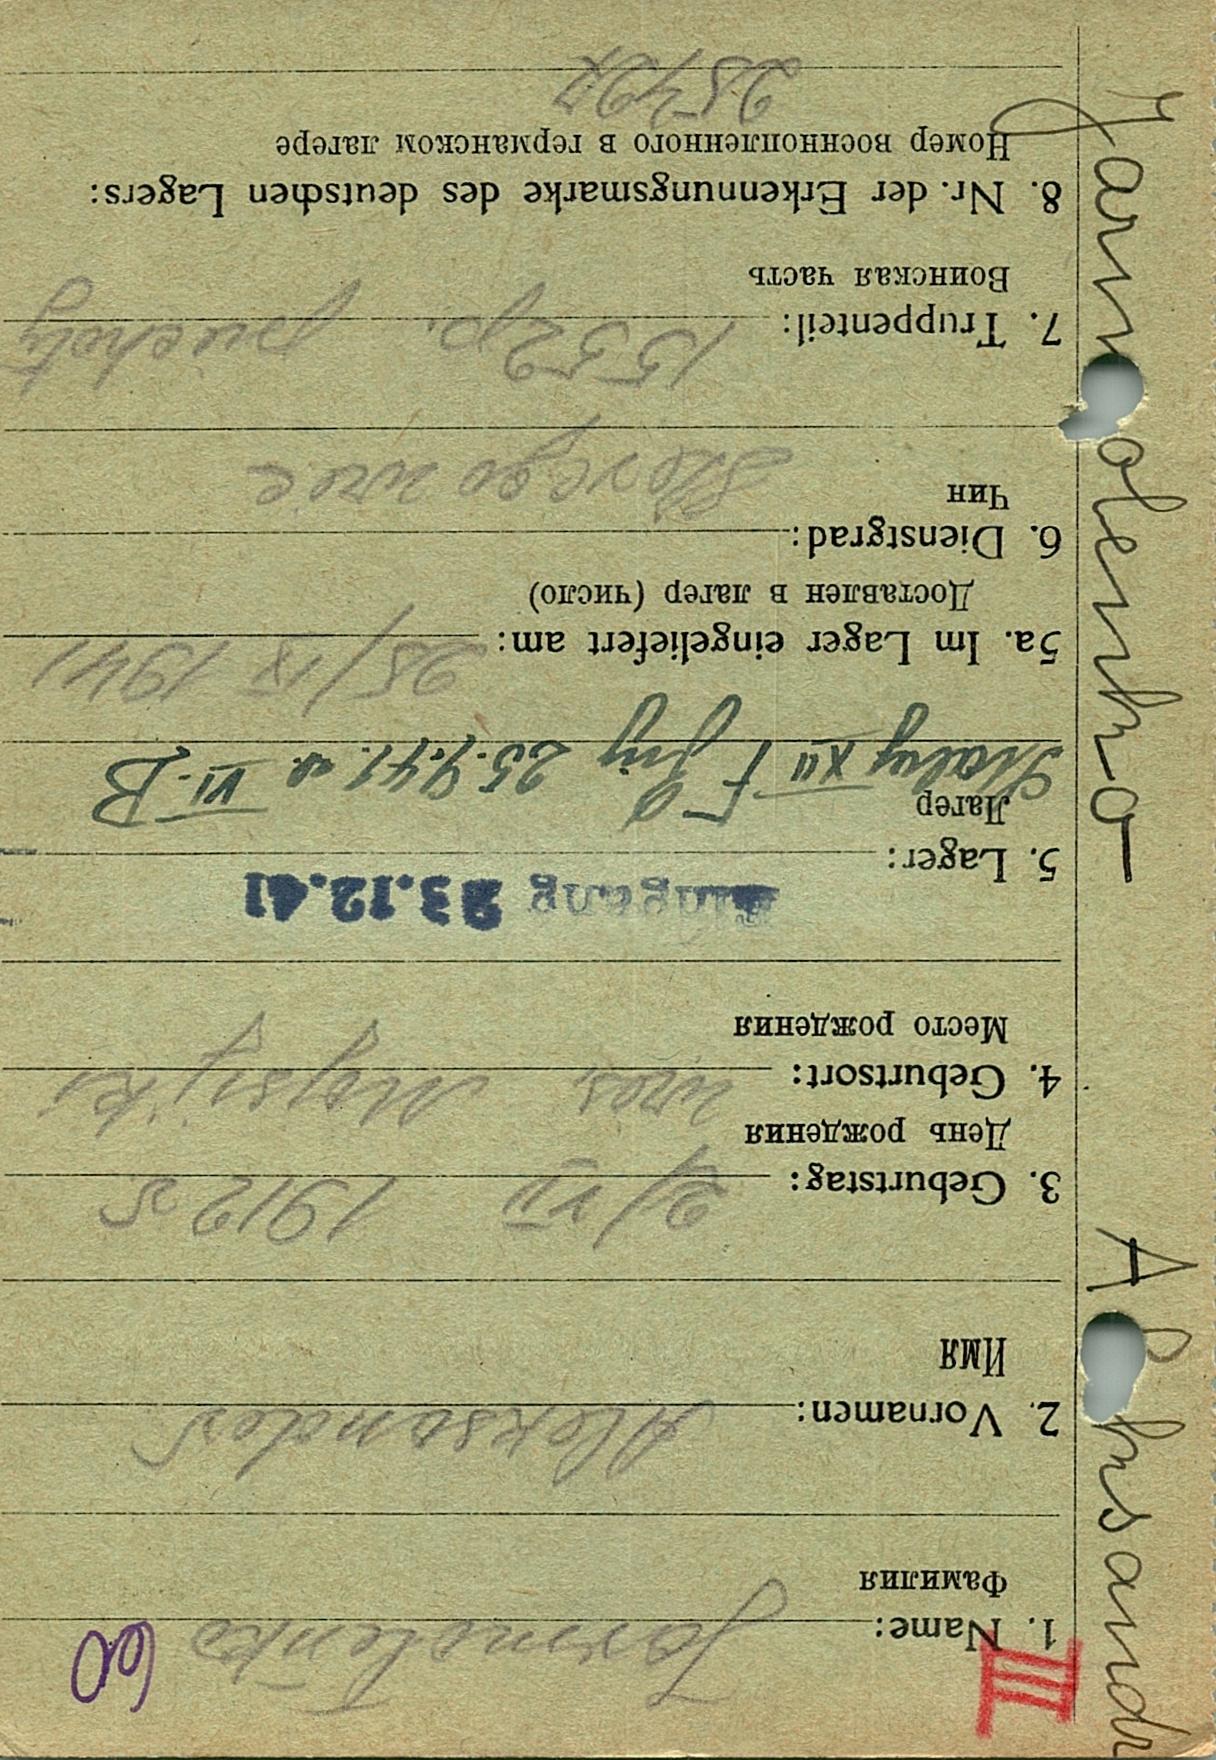 III
60
1. Name: Jarmolenko
Фамилия
2. Vornamen: Aleksander
Имя
3. Geburtstag: 2/VII 1912
День рождения
4. Geburtsort:
Место рождения
Eingang 23.12.41
5. Lager:
Лагер
Stalag XII F 25.9.41 VI.B
5a. Im Lager eingeliefert am: 25/IX 1941
Доставлен в лагер (число)
6. Dienstgrad:
Чин
7. Truppenteil: piechoty
Воинская часть
8. Nr. der Erkennungsmarke des deutschen Lagers:
Номер военнопленного в германском лагере
Jarmolenko Aleksandr